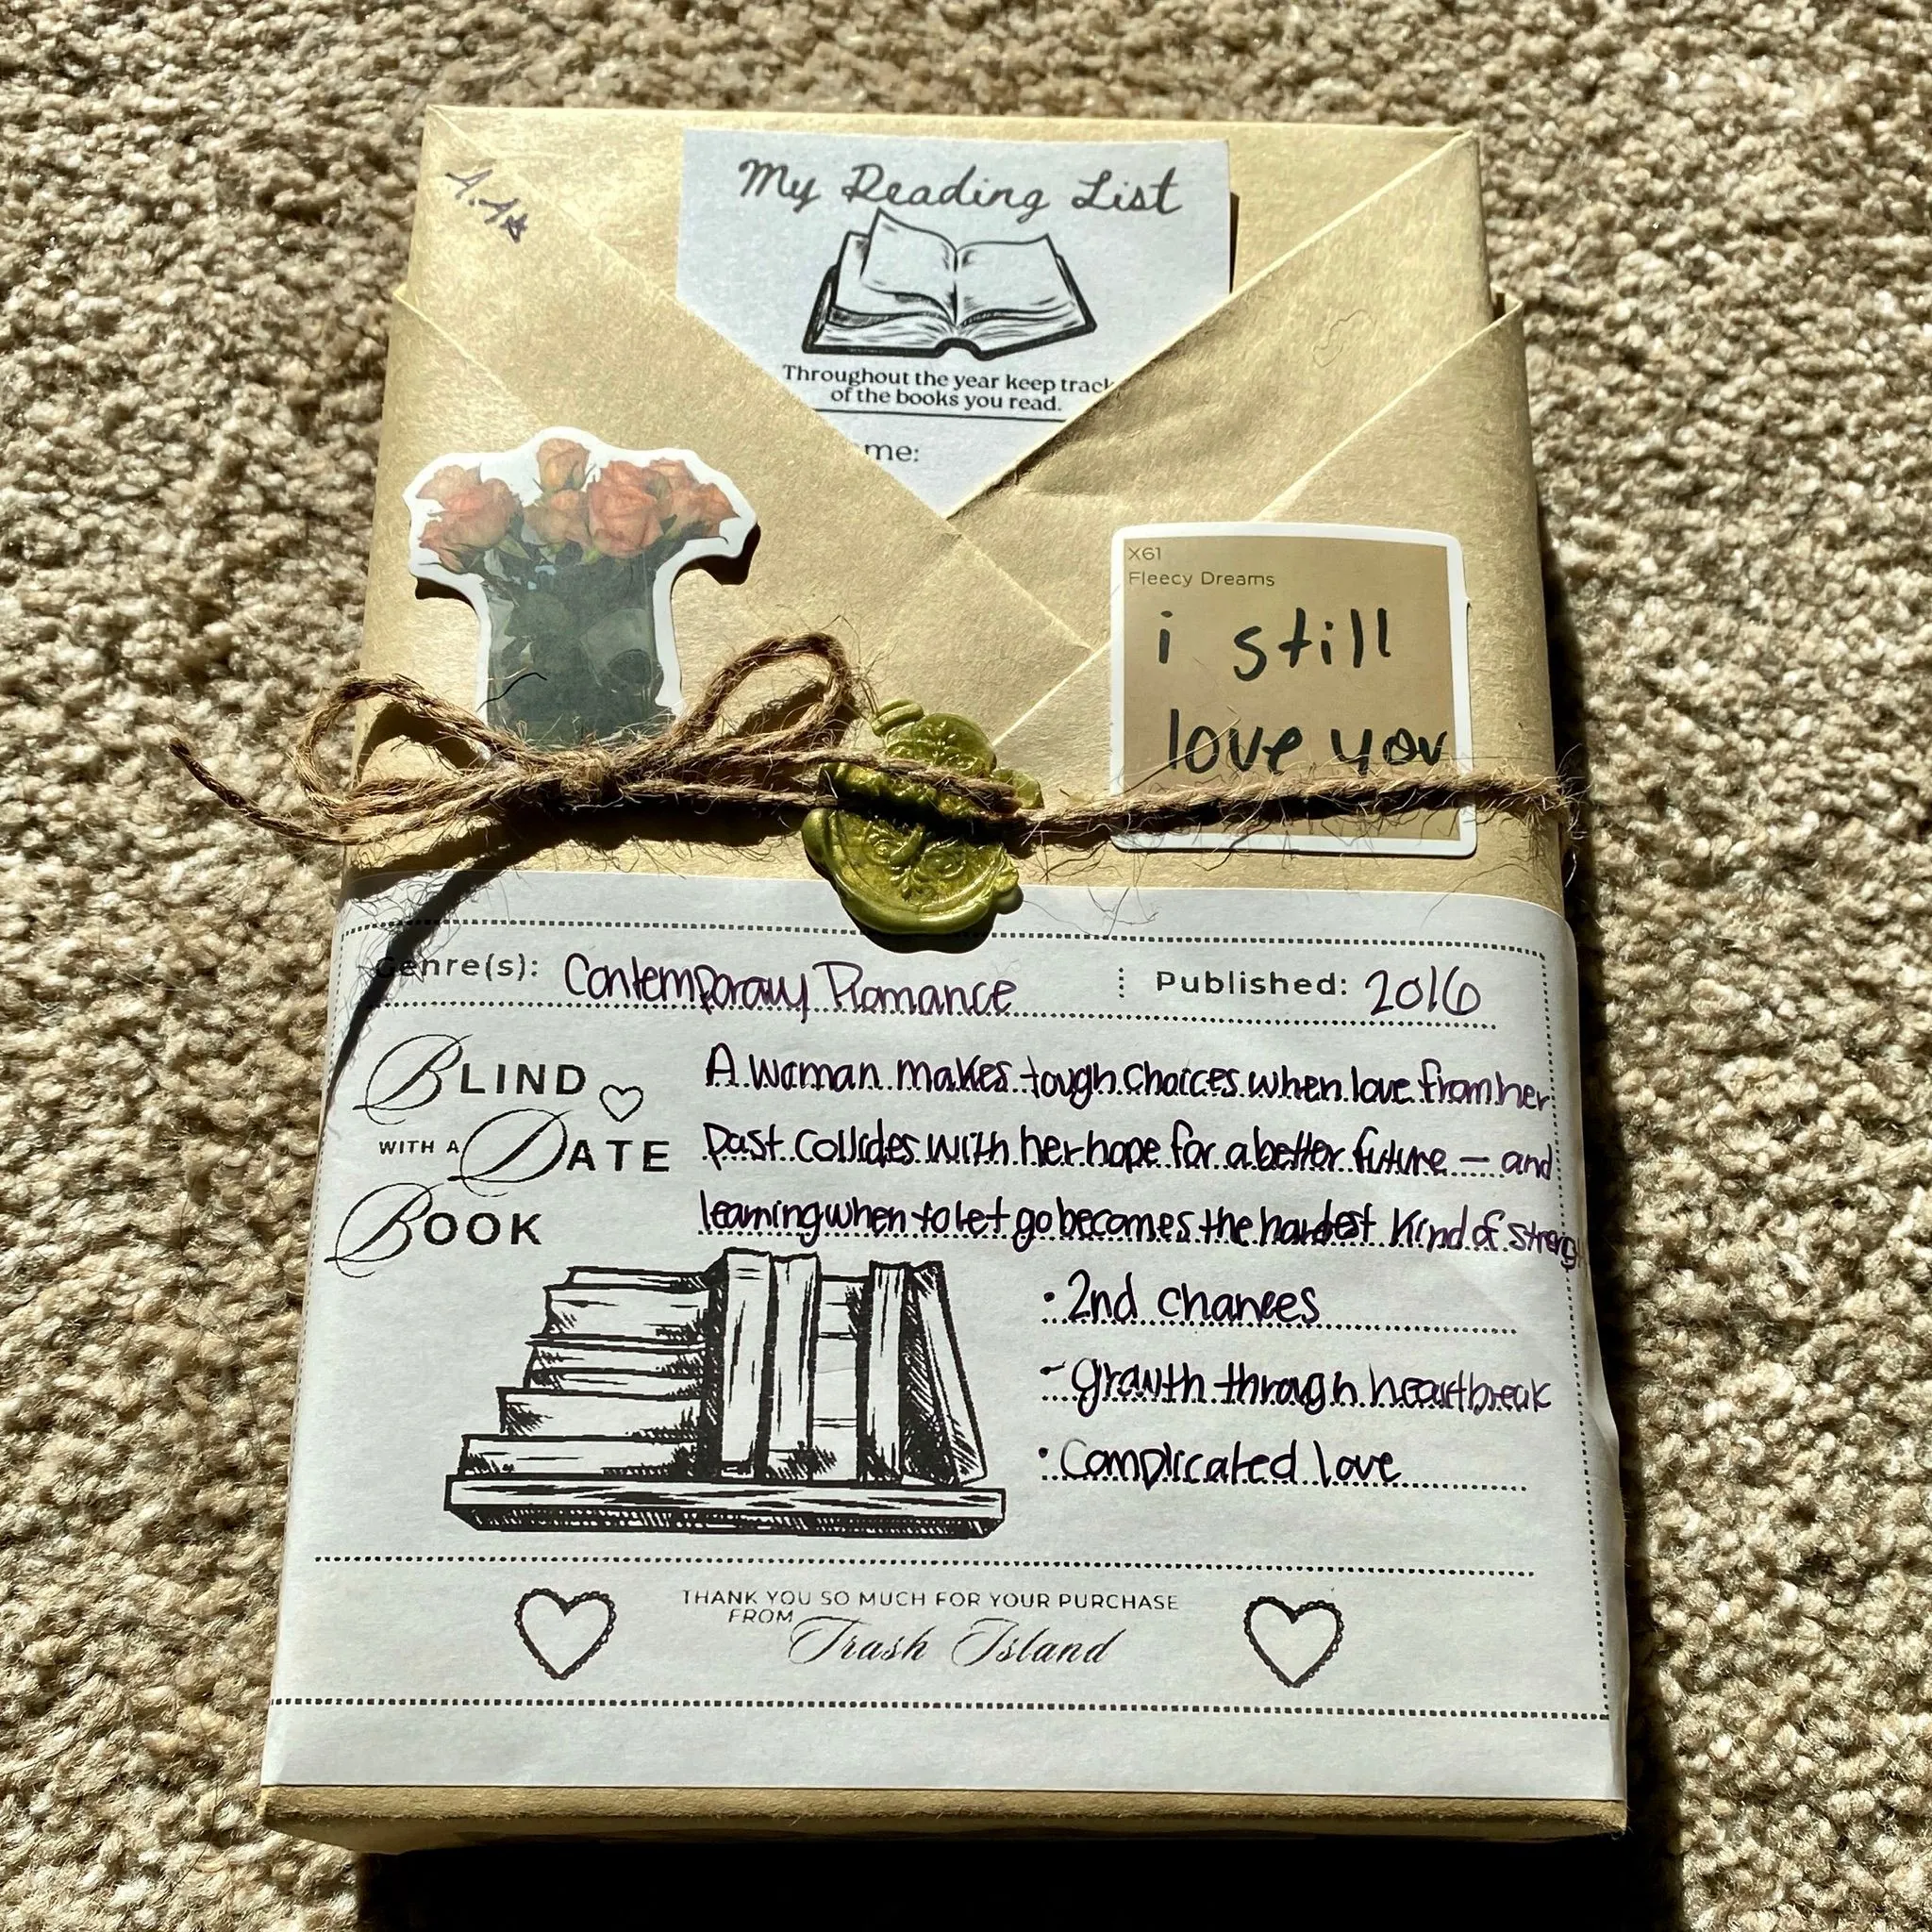 A.A
My Reading List
Throughout the year keep track
of the books you read.
me:
X61
Fleecy Dreams
i still
love you
Genre(s): Contemporary Romance
Published: 2016
BLIND
WITH A DATE
BOOK
A woman makes tough choices when love from her
past collides with her hope for a better future — and
learning when to let go becomes the hardest kind of streng
• 2nd chances
- growth through heartbreak
• Complicated love
THANK YOU SO MUCH FOR YOUR PURCHASE
FROM Trash Island